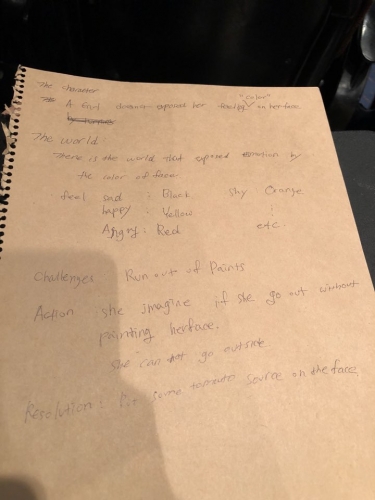 The character
"color"
A Girl doesn't exposed her feeling on her face
The world
There is the world that exposed emotion by
the color of face.
feel sad : Black shy Orange
happy : Yellow :
Angry : Red etc.
Challenges Run out of Paints
Action she imagine if she go out without
painting her face.
she can not go outside
Resolution : Put some tomato source on the face